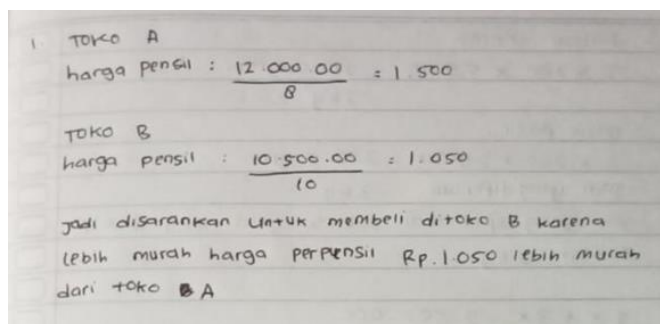 1. TOKO A
harga pensil : 12.000.00 = 1.500
8
TOKO B
harga pensil : 10.500.00 = 1.050
10
Jadi disarankan untuk membeli ditoko B karena
lebih murah harga perpensil Rp.1.050 lebih murah
dari toko A